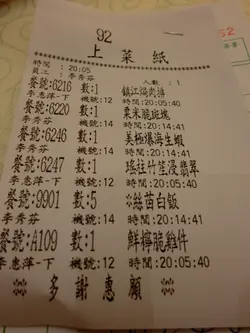 92 一
上菜紙
時間 : 20:05
員工 : 李秀芬 人數 : 1
餐號:6216 數:1 鎮江焗肉排
李惠萍-下 機號:12 時間:20:05:40
餐號:6220 數:1 粟米脆斑塊
李秀芬 機號:14 時間:20:14:41
餐號:6246 數:1 美極爆海生蝦
李秀芬 機號:14 時間:20:14:41
餐號:6247 數:1 瑤柱竹笙浸翡翠
李惠萍-下 機號:12 時間:20:05:40
餐號:9901 數:5 *絲苗白飯
李秀芬 機號:14 時間:20:14:41
餐號:A109 數:1 鮮檸脆雞件
李惠萍-下 機號:12 時間:20:05:40
多謝惠顧
52